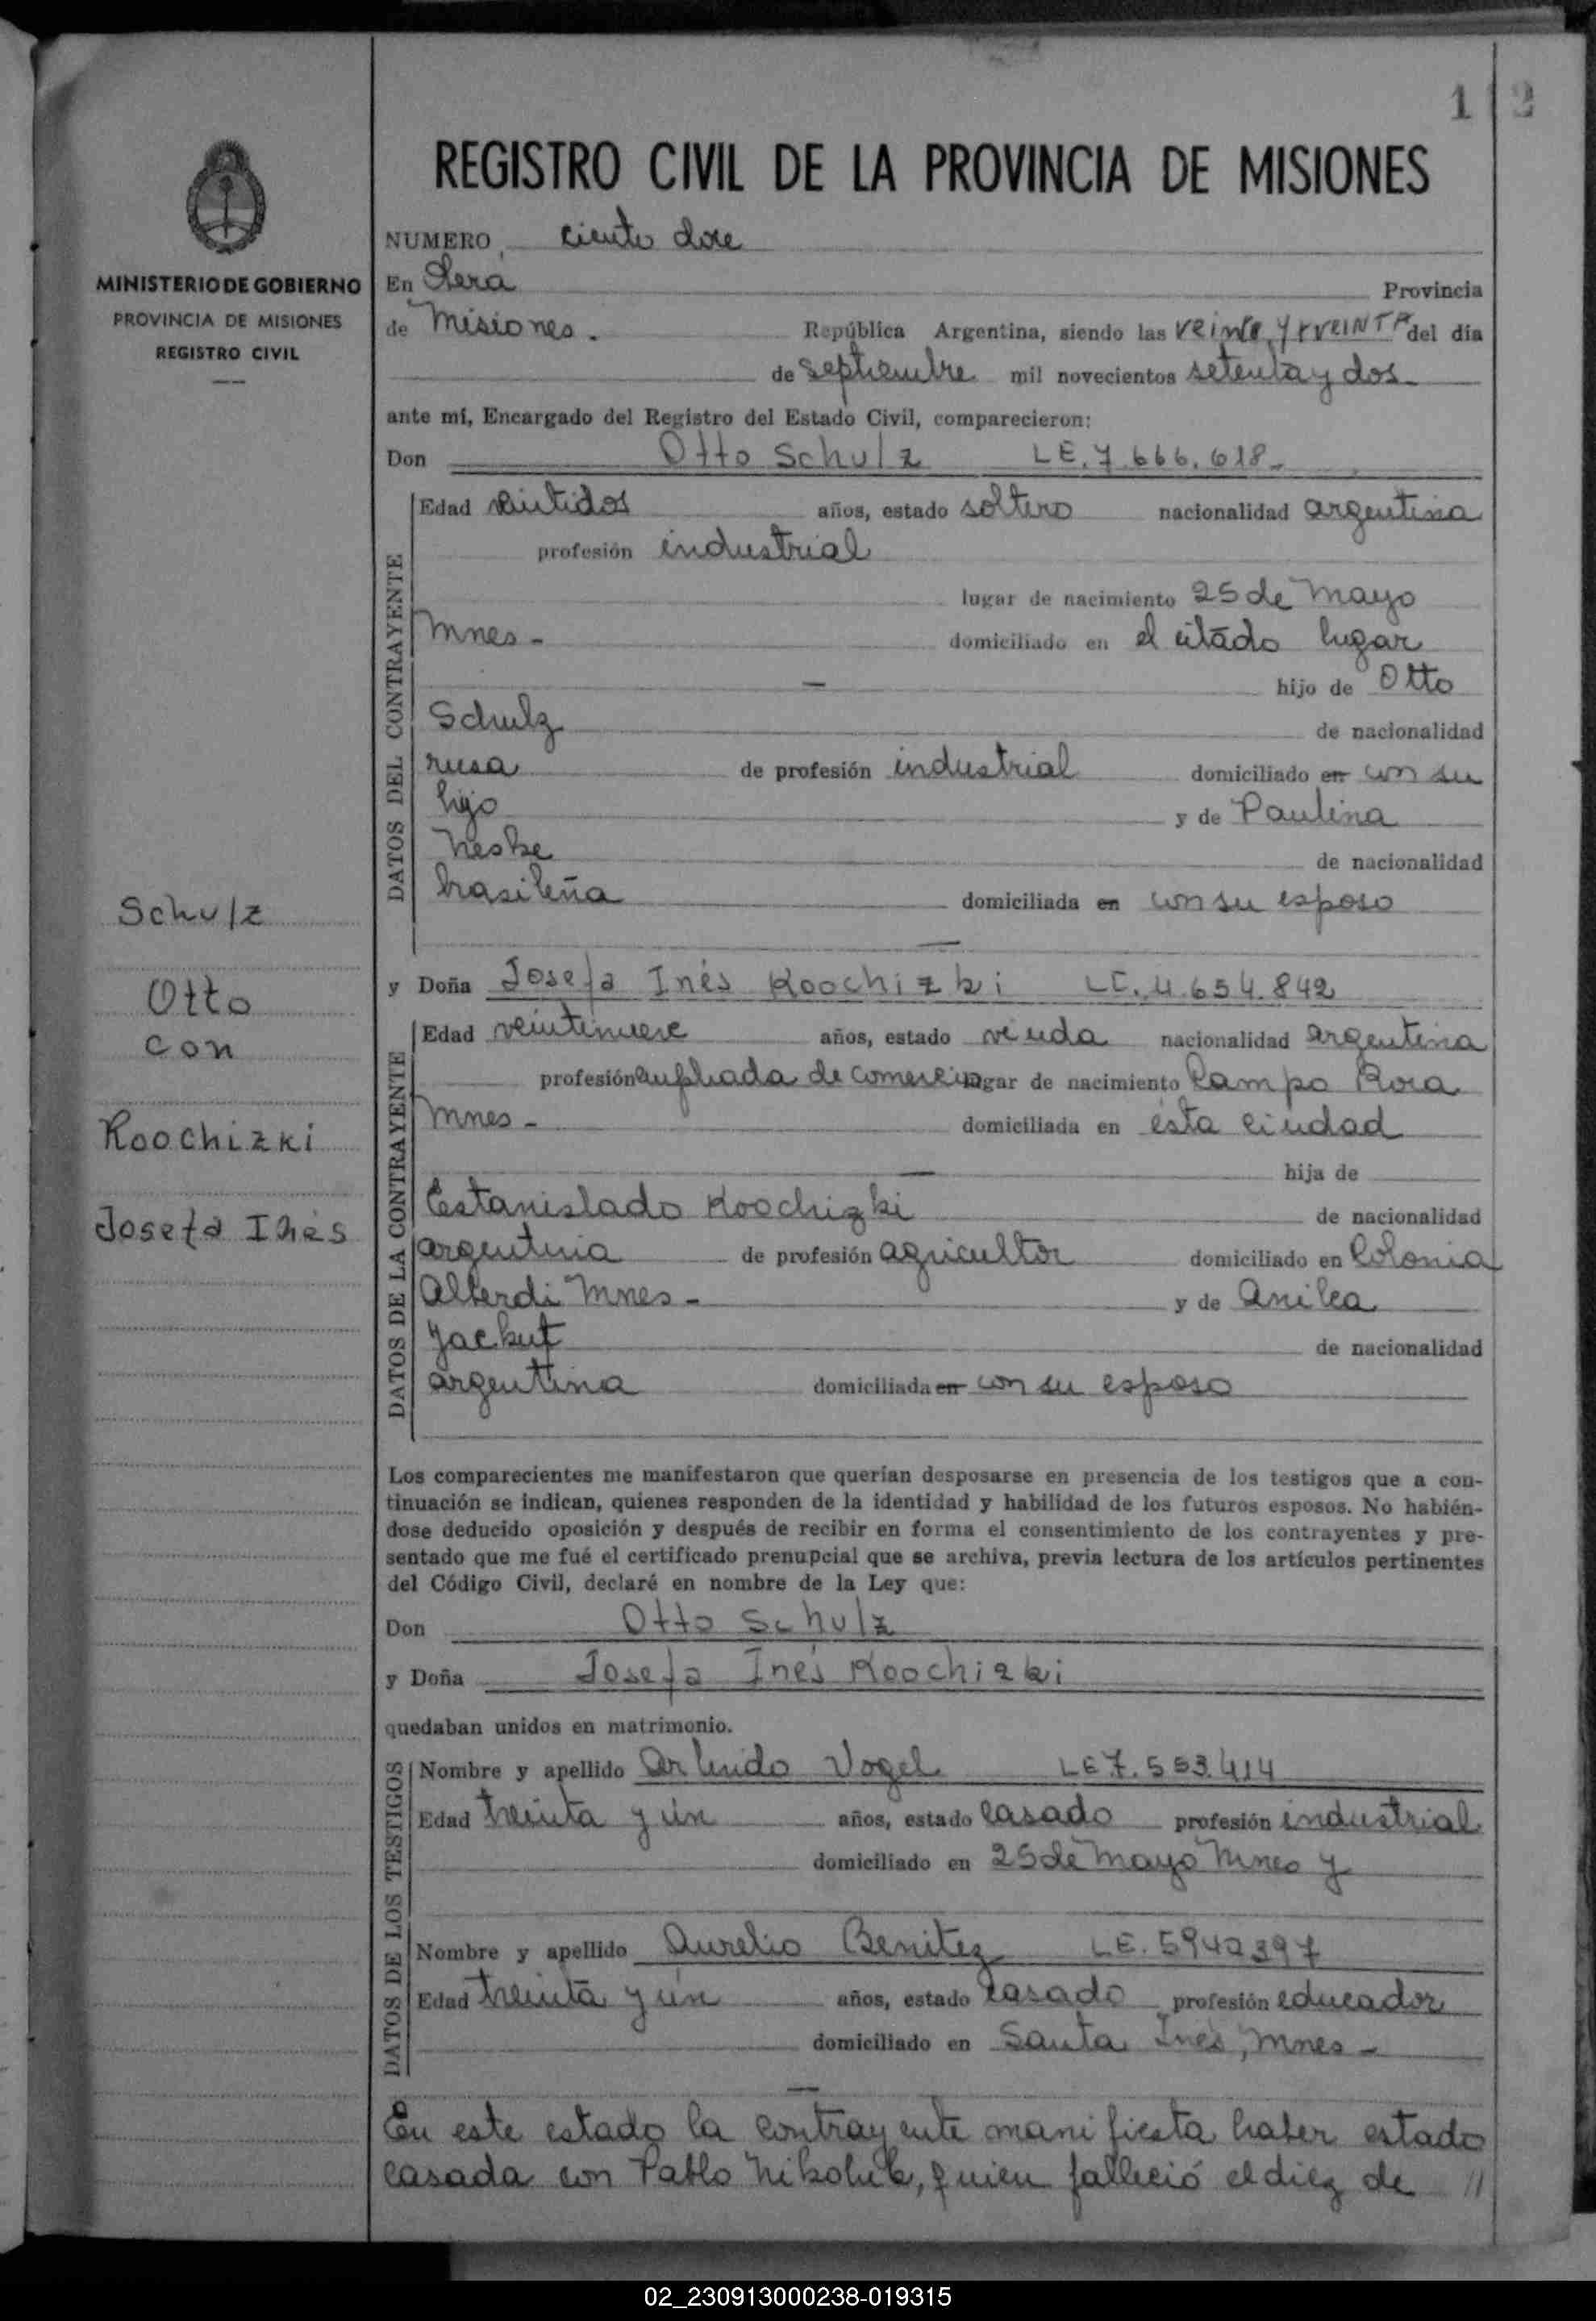 1 | 2
REGISTRO CIVIL DE LA PROVINCIA DE MISIONES
NUMERO ciento doce
MINISTERIO DE GOBIERNO
PROVINCIA DE MISIONES
REGISTRO CIVIL
En Oberá Provincia
de Misiones. República Argentina, siendo las veinte y treinta del día
de septiembre mil novecientos setenta y dos
ante mí, Encargado del Registro del Estado Civil, comparecieron:
Don Otto Schulz LE. 7.666.618.
DATOS DEL CONTRAYENTE
Edad veintidos años, estado soltero nacionalidad argentina
profesión industrial
lugar de nacimiento 25 de Mayo
Mnes - domiciliado en el citado lugar
— hijo de Otto
Schulz de nacionalidad
rusa de profesión industrial domiciliado en con su
hijo y de Paulina
Neske de nacionalidad
brasileña domiciliada en con su esposo
—
Schulz
Otto
con
Koochizki
Josefa Inés
y Doña Josefa Inés Koochizki LC. 4.654.842
DATOS DE LA CONTRAYENTE
Edad veintinueve años, estado viuda nacionalidad argentina
profesión empleada de comercio lugar de nacimiento Campo
Mnes - domiciliada en ésta ciudad
— hija de
Estanislado Koochizki de nacionalidad
argentina de profesión agricultor domiciliado en Colonia
Alberdi Mnes - y de
de nacionalidad
argentina domiciliada en con su esposo
Los comparecientes me manifestaron que querían desposarse en presencia de los testigos que a con-
tinuación se indican, quienes responden de la identidad y habilidad de los futuros esposos. No habién-
dose deducido oposición y después de recibir en forma el consentimiento de los contrayentes y pre-
sentado que me fué el certificado prenupcial que se archiva, previa lectura de los artículos pertinentes
del Código Civil, declaré en nombre de la Ley que:
Don Otto Schulz
y Doña Josefa Inés Koochizki
quedaban unidos en matrimonio.
DATOS DE LOS TESTIGOS
Nombre y apellido Arlindo Vogel LE 7.553.414
Edad treinta y ún años, estado casado profesión industrial
domiciliado en 25 de Mayo Mnes y
Nombre y apellido Aurelio Benitez LE. 5942397
Edad treinta y ún años, estado casado profesión educador
domiciliado en Santa Inés, Mnes -
—
En este estado la contrayente manifiesta haber estado
casada con Pablo Nikoluk, quien falleció el diez de //
02_230913000238-019315